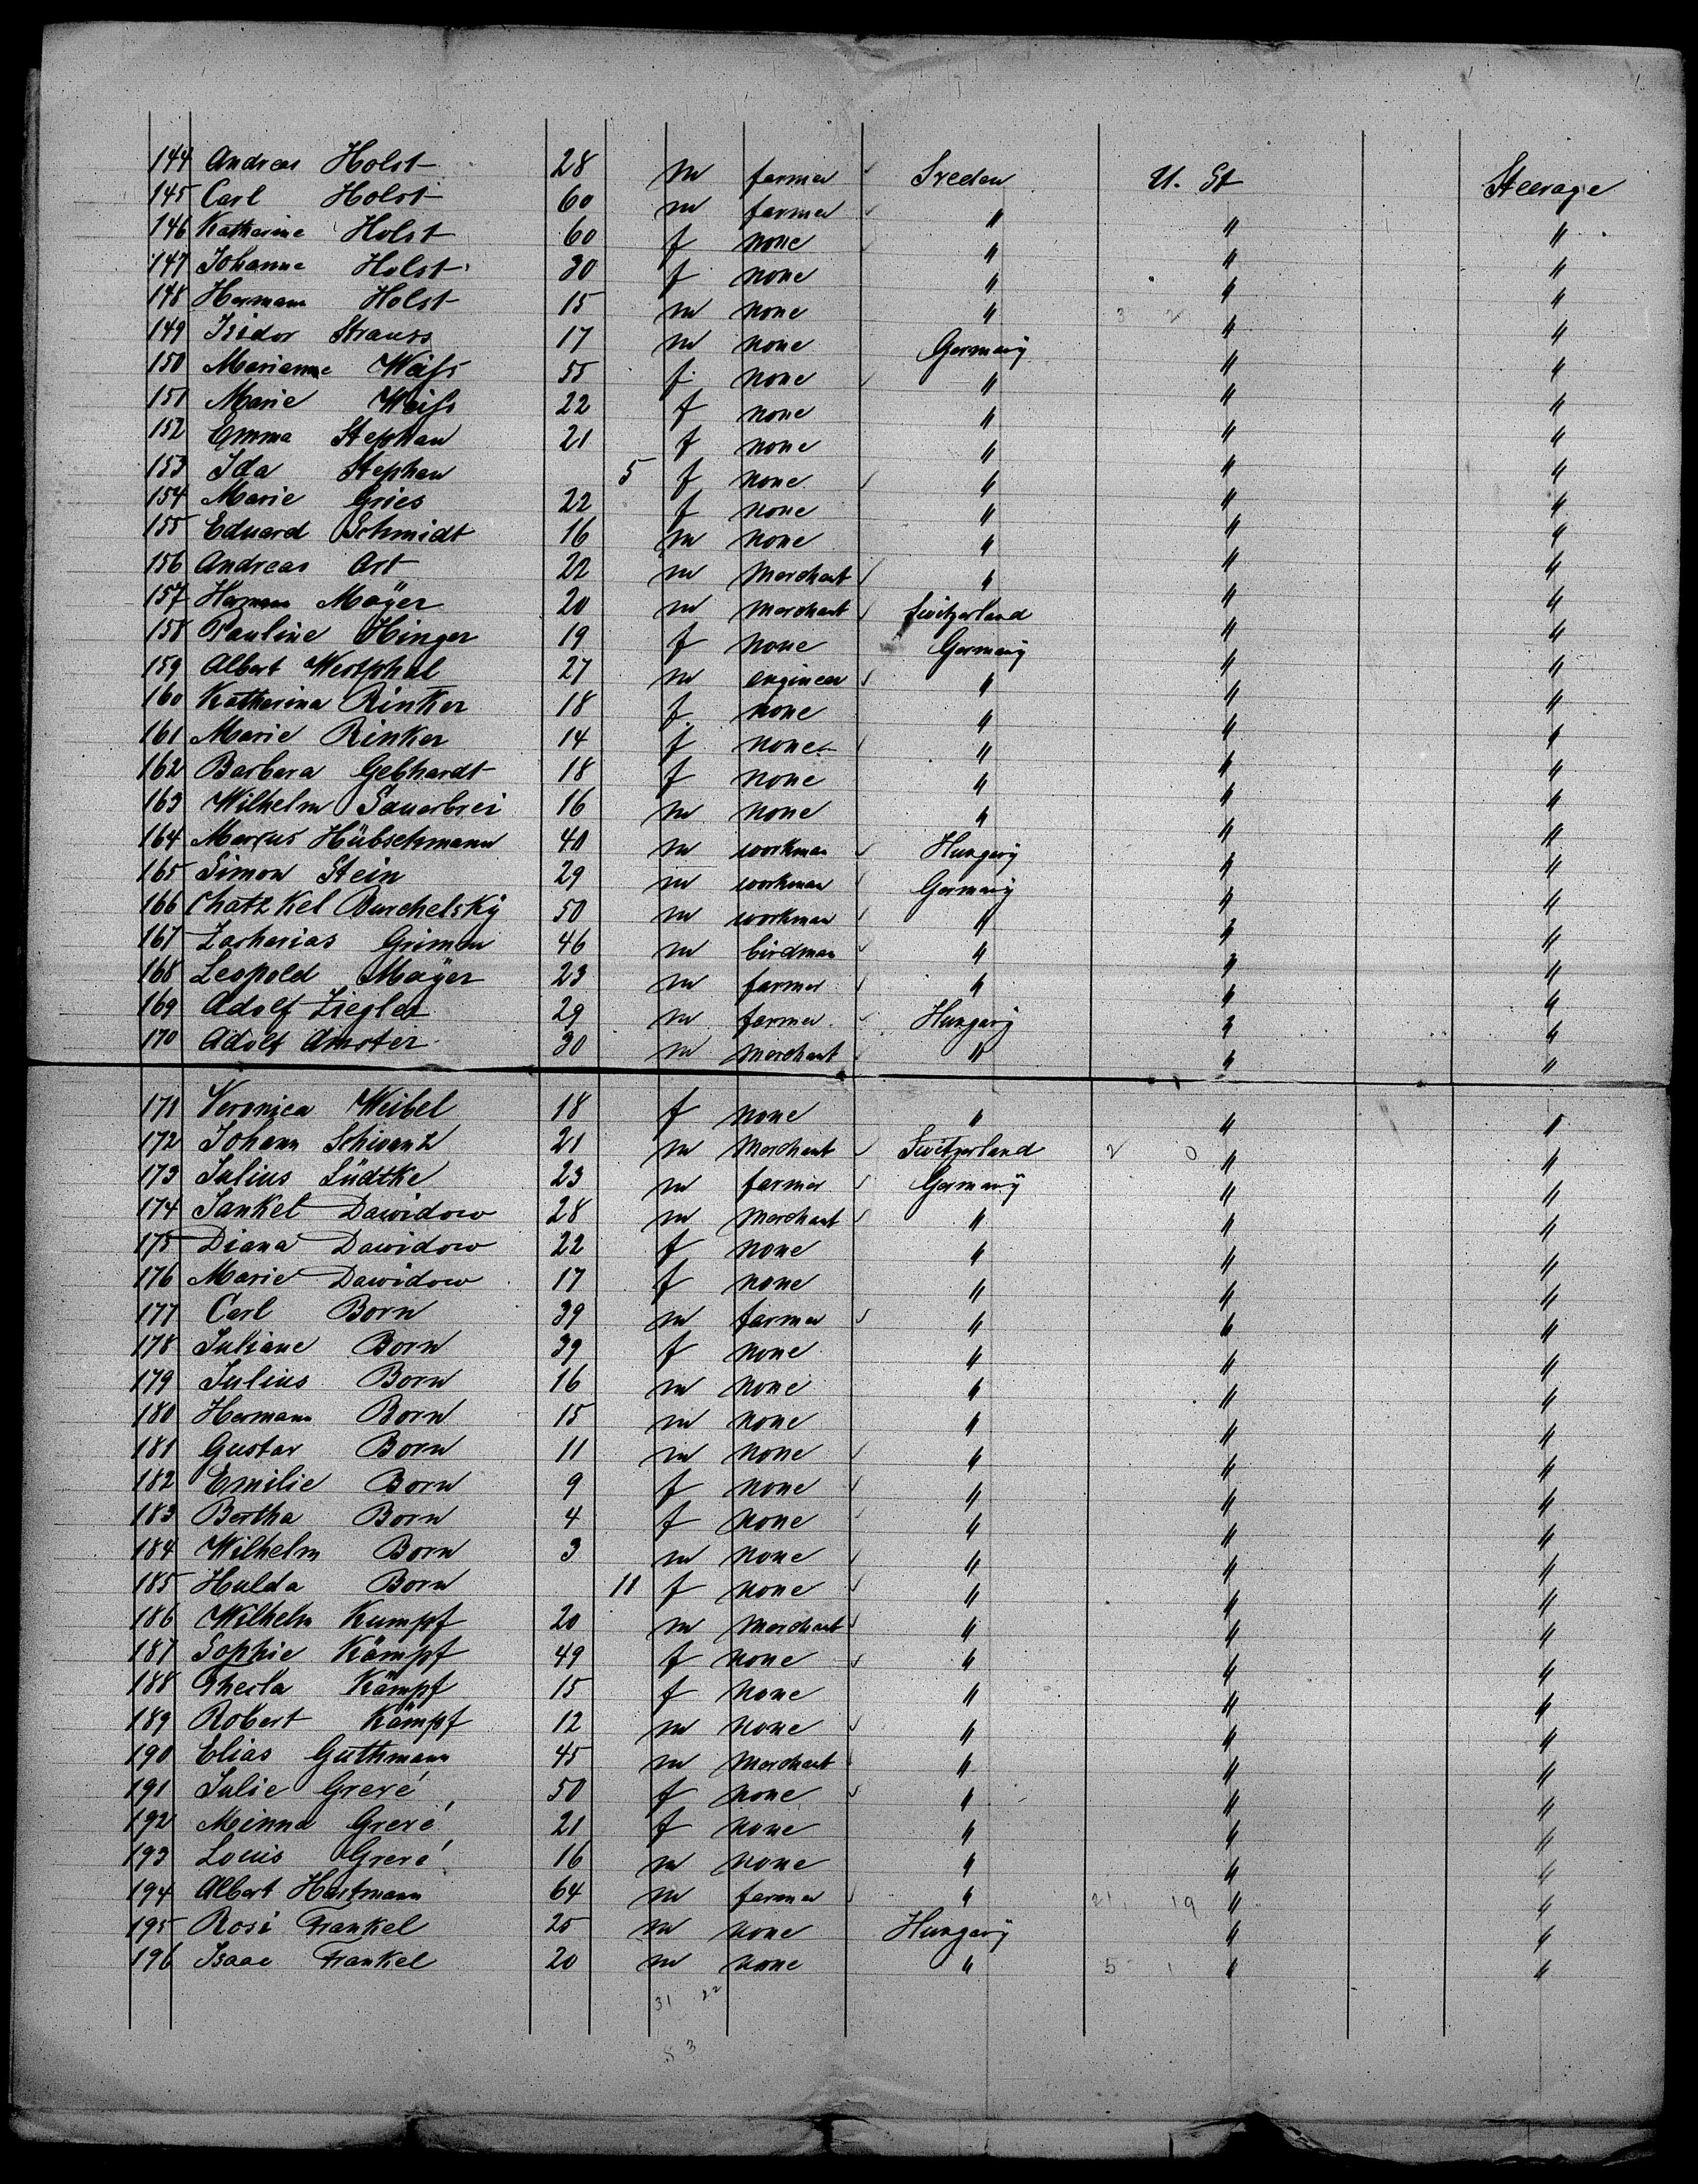 144 Andreas Holst 28 m farmer Sveden U. St Steerage
145 Carl Holst 60 m farmer " " "
146 Katharine Holst 60 f none " " "
147 Johanne Holst 30 f none " " "
148 Hermann Holst 15 m none " 3 2 " "
149 Isidor Strauss 17 m none Germany " "
150 Marianne Weiss 55 f none " " "
151 Marie Weiss 22 f none " " "
152 Emma Stephan 21 f none " " "
153 Ida Stephan 5 f none " " "
154 Marie Gries 22 f none " " "
155 Eduard Schmidt 16 m none " " "
156 Andreas Art 22 m Merchant " " "
157 Herman Mayer 20 m Merchant Switzerland " "
158 Pauline Hinger 19 f none Germany " "
159 Albert Westphal 27 m engineer " " "
160 Katharina Rinker 18 f. none " " "
161 Marie Rinker 14 f none " " "
162 Barbara Gebhardt 18 f none " " "
163 Wilhelm Sauerbrei 16 m none " " "
164 Marcus Hübschmann 40 m workman Hungary " "
165 Simon Stein 29 m workman Germany " "
166 Chatzkel Burchelsky 50 m workman " " "
167 Zacharias Grimm 46 m birdman " " "
168 Leopold Mayer 23 m farmer " " "
169 Adolf Ziegler 29 m farmer Hungary " "
170 Adolf Amster 30 m Merchant " " "
171 Veronica Weibel 18 f none " " "
172 Johann Schwantz 21 m Merchant Switzerland 2 0 " "
173 Julius Lüdtke 23 m farmer Germany " "
174 Jankel Dawidow 28 m Merchant " " "
175 Diana Dawidow 22 f none " " "
176 Marie Dawidow 17 f none " " "
177 Carl Born 39 m farmer " " "
178 Juliane Born 39 f none " " "
179 Julius Born 16 m none " " "
180 Hermann Born 15 m none " " "
181 Gustav Born 11 m none " " "
182 Emilie Born 9 f none " " "
183 Bertha Born 4 f none " " "
184 Wilhelm Born 3 m none " " "
185 Hulda Born 11 f none " " "
186 Wilhelm Kumpf 20 m Merchant " " "
187 Sophie Kämpf 49 f none " " "
188 Thecla Kämpf 15 f none " " "
189 Robert Kämpf 12 m none " " "
190 Elias Guthmann 45 m Merchant " " "
191 Julie Greré 50 f none " " "
192 Minna Greré 21 f none " " "
193 Louis Greré 16 m none " " "
194 Albert Hartmann 64 m farmer " 21 19 " "
195 Rosi Frankel 25 m none Hungary " "
196 Isaac Frankel 20 m none " 5 1 " "
31 22
53